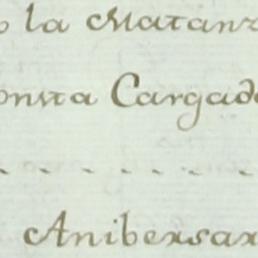 o la Matanz
onsta Cargad
Anibersar